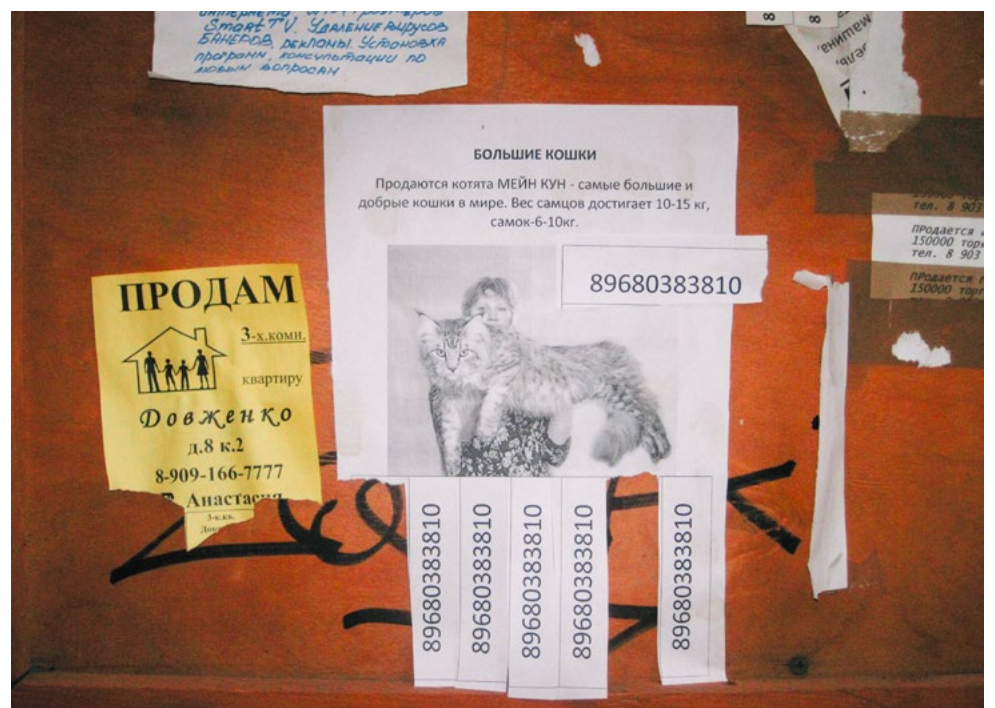 Smart TV. Удаление вирусов
БАНЕРОВ, рекламы. Установка
программ, консультации по
любым вопросам
БОЛЬШИЕ КОШКИ
Продаются котята МЕЙН КУН - самые большие и
добрые кошки в мире. Вес самцов достигает 10-15 кг,
самок-6-10кг.
89680383810
89680383810
89680383810
89680383810
89680383810
89680383810
ПРОДАМ
3-х.комн.
квартиру
Довженко
д.8 к.2
8-909-166-7777
Анастасия
3-к.кв.
машина,
тел. 8 903
ПРодается
150000 торг
тел. 8 903
ПРодается
150000 торг